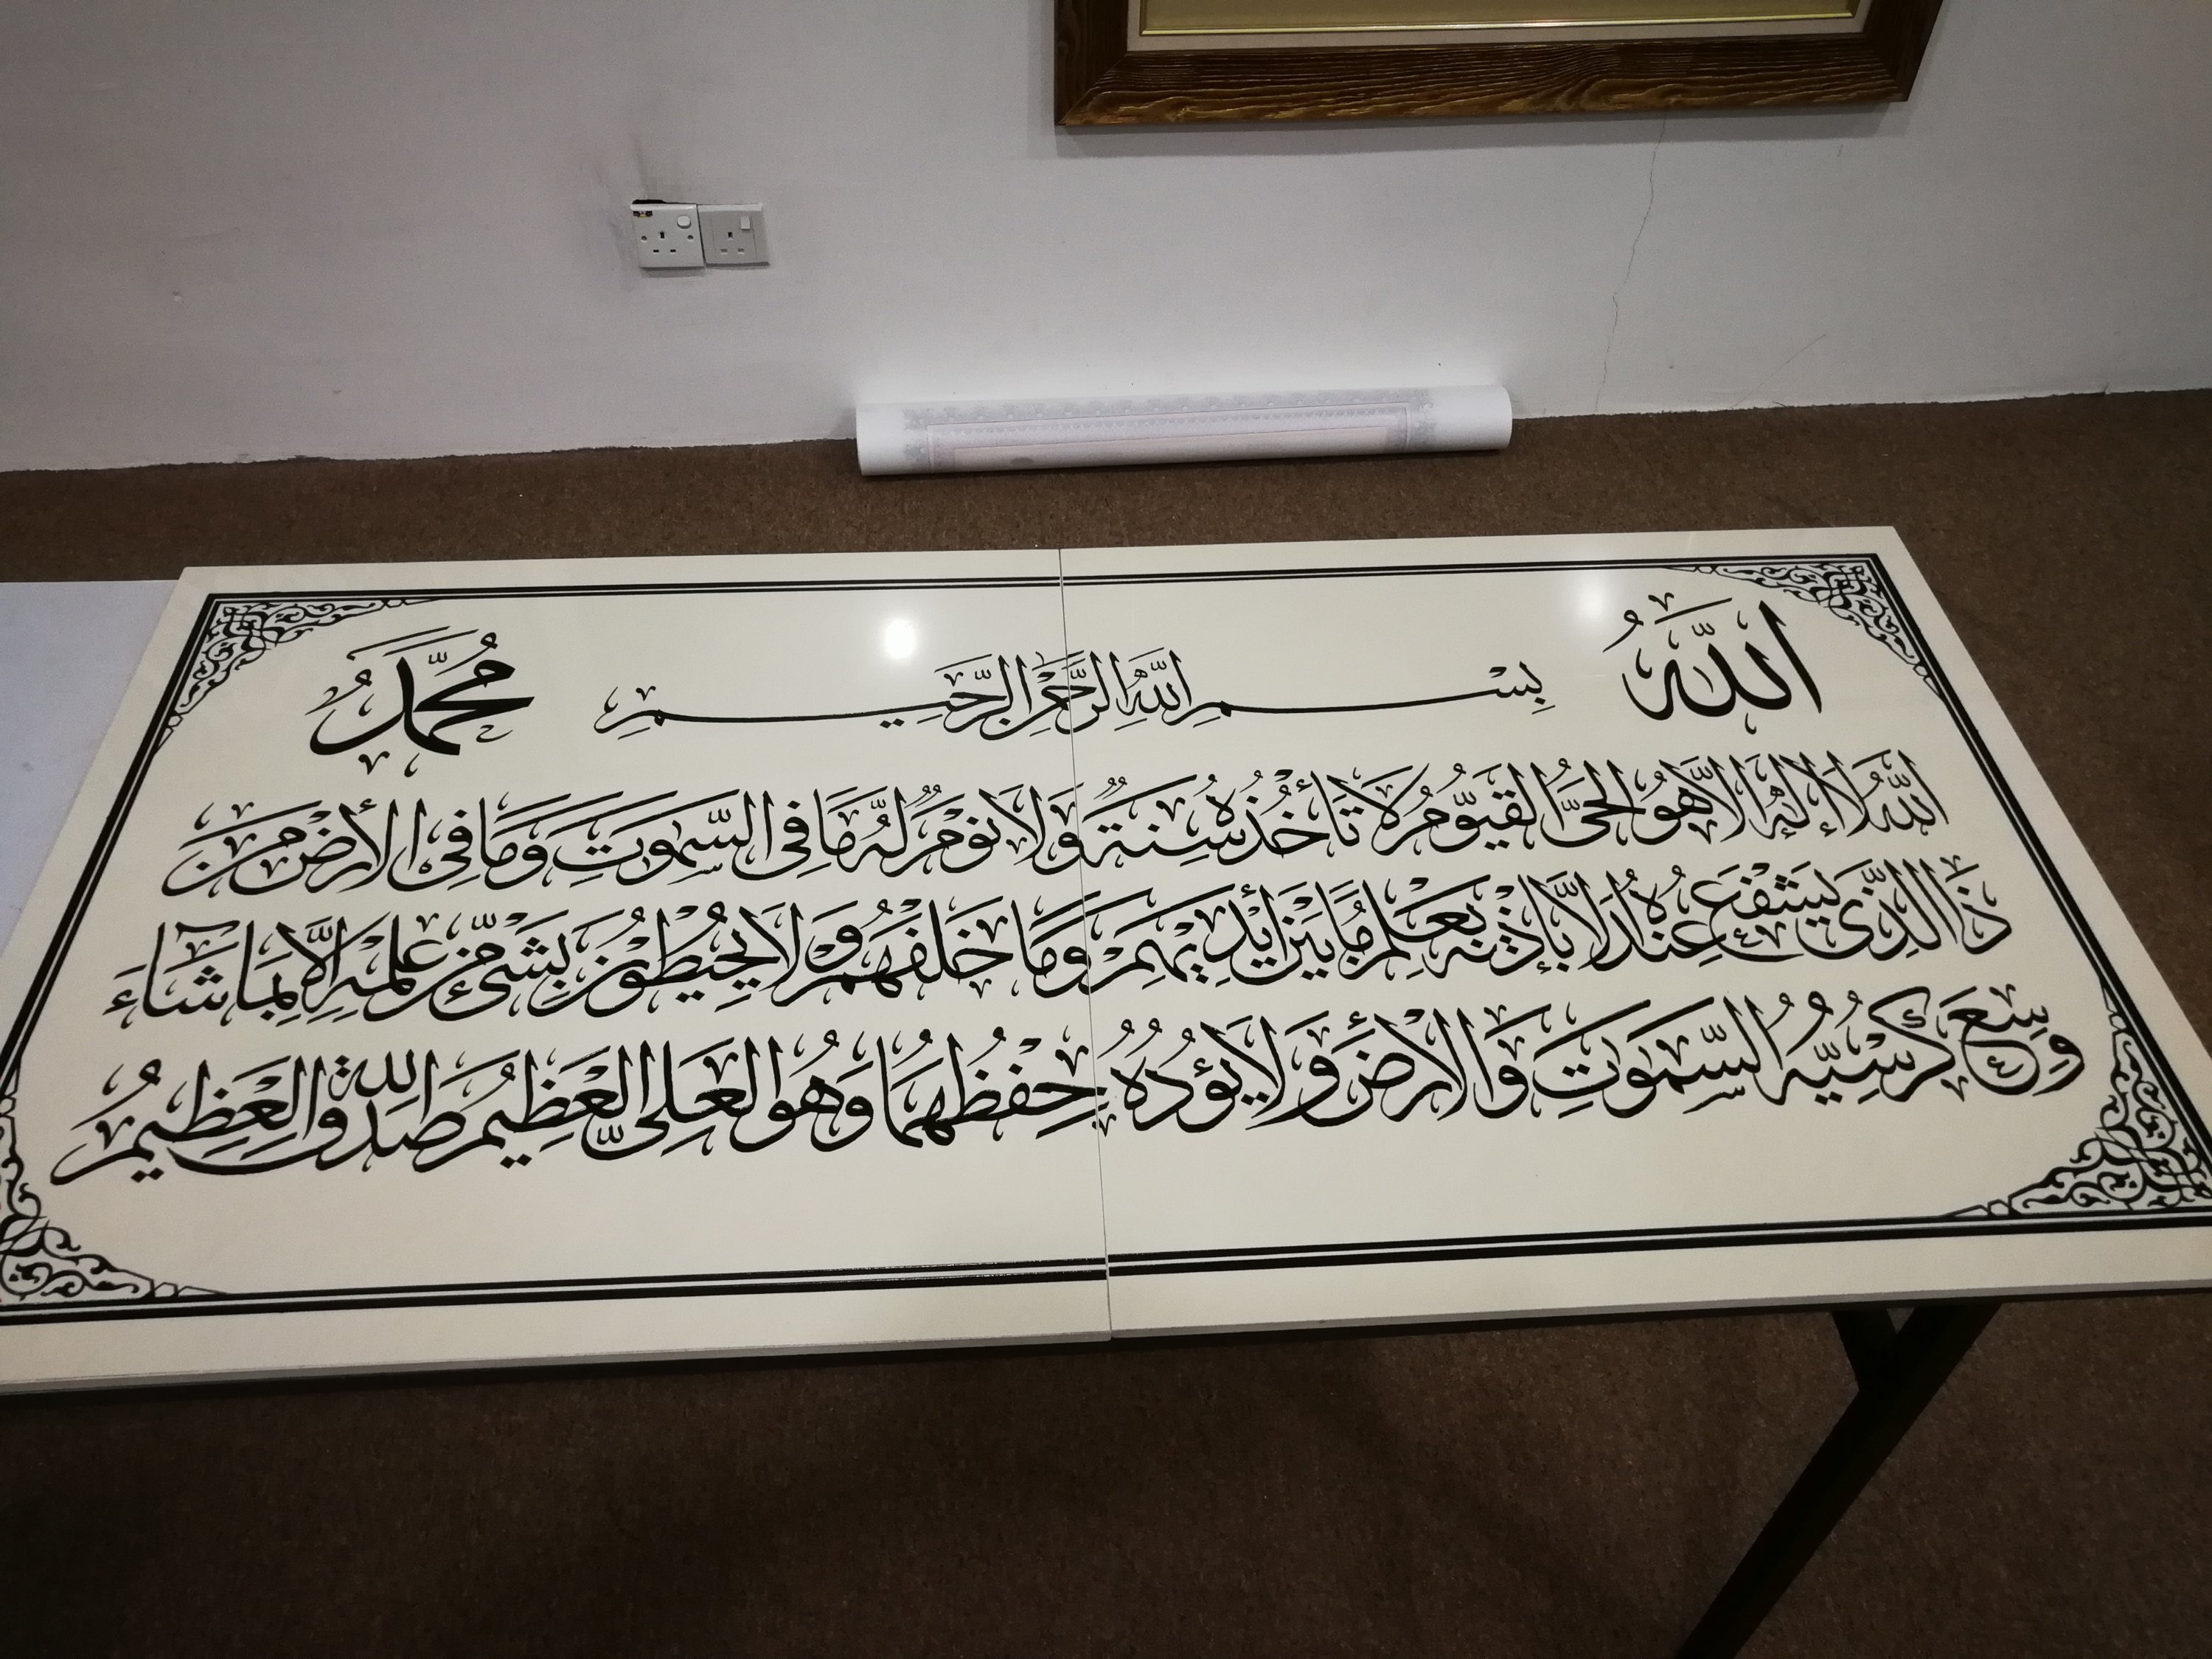 الله بِسْمِ اللهِ الرَّحْمٰنِ الرَّحِيمِ مُحَمَّد
اللهُ لَا إِلٰهَ إِلَّا هُوَ الْحَيُّ الْقَيُّومُ لَا تَأْخُذُهُ سِنَةٌ وَلَا نَوْمٌ لَهُ مَا فِي السَّمٰوٰتِ وَمَا فِي الْأَرْضِ مَنْ
ذَا الَّذِي يَشْفَعُ عِنْدَهُ إِلَّا بِإِذْنِهِ يَعْلَمُ مَا بَيْنَ أَيْدِيهِمْ وَمَا خَلْفَهُمْ وَلَا يُحِيطُونَ بِشَيْءٍ مِّنْ عِلْمِهِ إِلَّا بِمَا شَاءَ
وَسِعَ كُرْسِيُّهُ السَّمٰوٰتِ وَالْأَرْضَ وَلَا يَؤُدُهُ حِفْظُهُمَا وَهُوَ الْعَلِيُّ الْعَظِيمُ صَدَقَ اللهُ الْعَظِيمُ